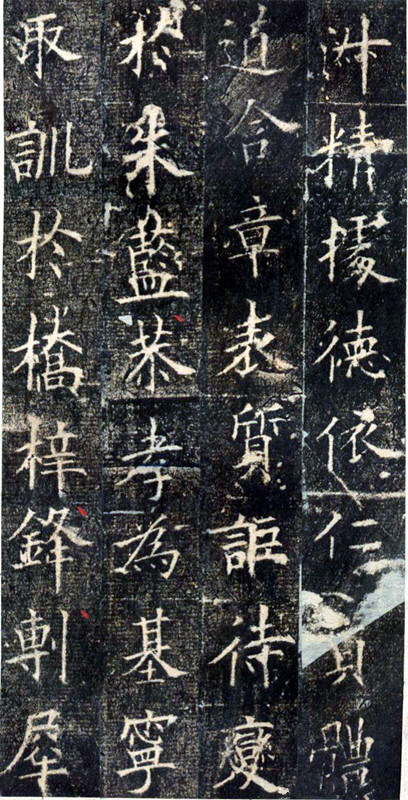 淑精據德依仁貞體
道含章表質詎待變
於朱藍恭孝為基寧
取訓於橋梓鋒剸犀